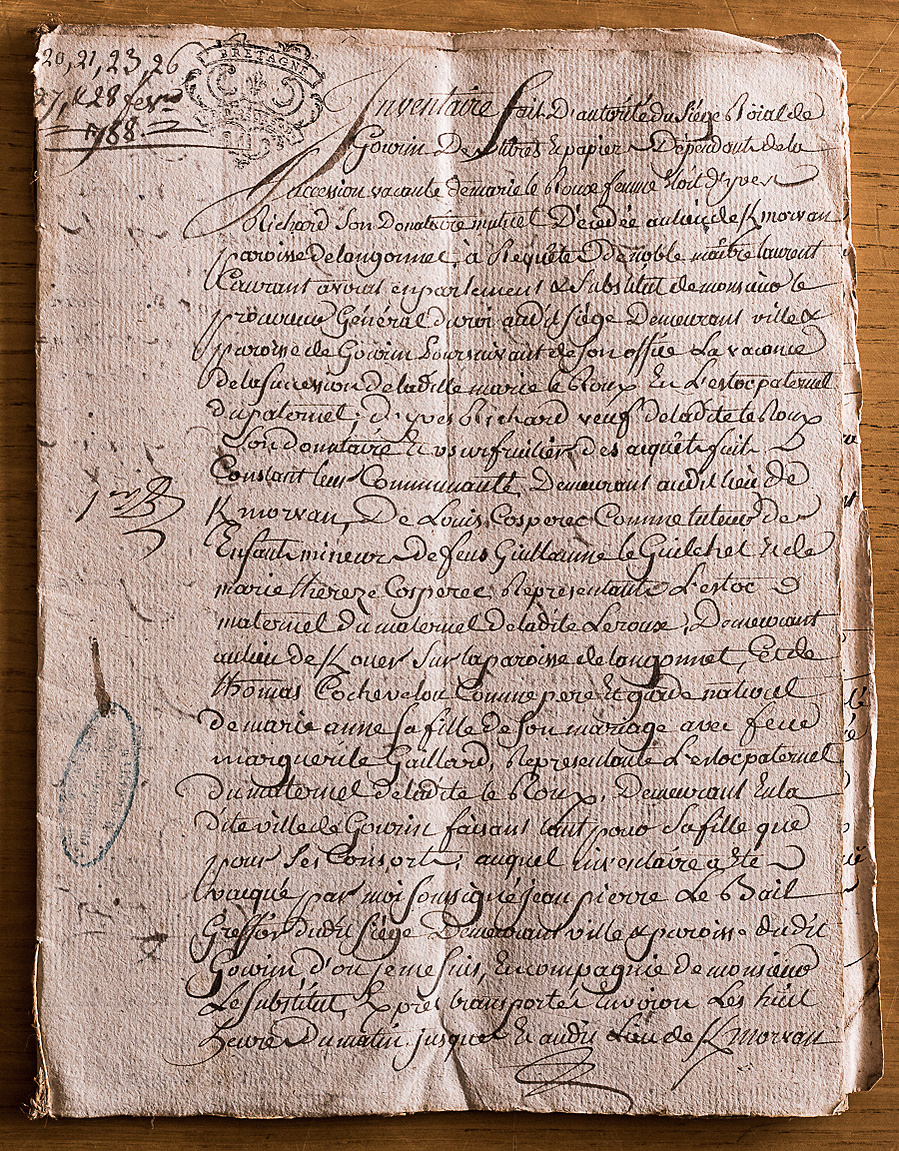 20, 21, 23, 26
27, & 28 fevr
1788
BRETAGNE
Inventaire fait D'autorité du Siége Roial de
Gourin De titres & papiers Dépendants de la
succession vacante de marie le Roux femme Yves
Richard Son Donataire mutuel Décédée au lieu de Kmorvan
paroisse de langonnet, à Requête de noble maître laurent
avocat en parlement & Substitut de monsieur le
procureur Général du roi audit Siége Demeurant ville &
paroisse de Gourin Poursuivant de Son office La vacance
de la Succession De ladite marie le Roux En L'estoc paternel
du paternel, d'Yves Richard veuf de ladite le Roux
Son donataire & usufruitier des acquêts fait
Constant leur Communauté, Demeurant audit lieu de
Kmorvan, De Louis Cosperec Comme tuteur de
Enfants mineurs de feus Guillaume le Guilcher & de
marie thereze Cosperec, Representants L'estoc
maternel du maternel de ladite Leroux, Demeurant
au lieu de Kouer Sur la paroisse de langonnet, Et de
thomas Cochevelou Comme pere Et garde naturel
de marie anne Sa fille de Son mariage avec feue
marguerite Gaillard, Representante L'estoc paternel
Du maternel de ladite le Roux, Demeurant En la
dite ville de Gourin faisant tant pour Sa fille que
pour Ses Consorts, auquel inventaire a Eté
vacqué par moi Soussigné jean pierre Le Bail
Greffier dudit Siége Demeurant ville & paroisse dudit
Gourin d'ou je me suis, En compagnie de monsieur
Le Substitut, Exprès transporté Environ Les huit
heures Du matin jusques Et audit Lieu de Kmorvan